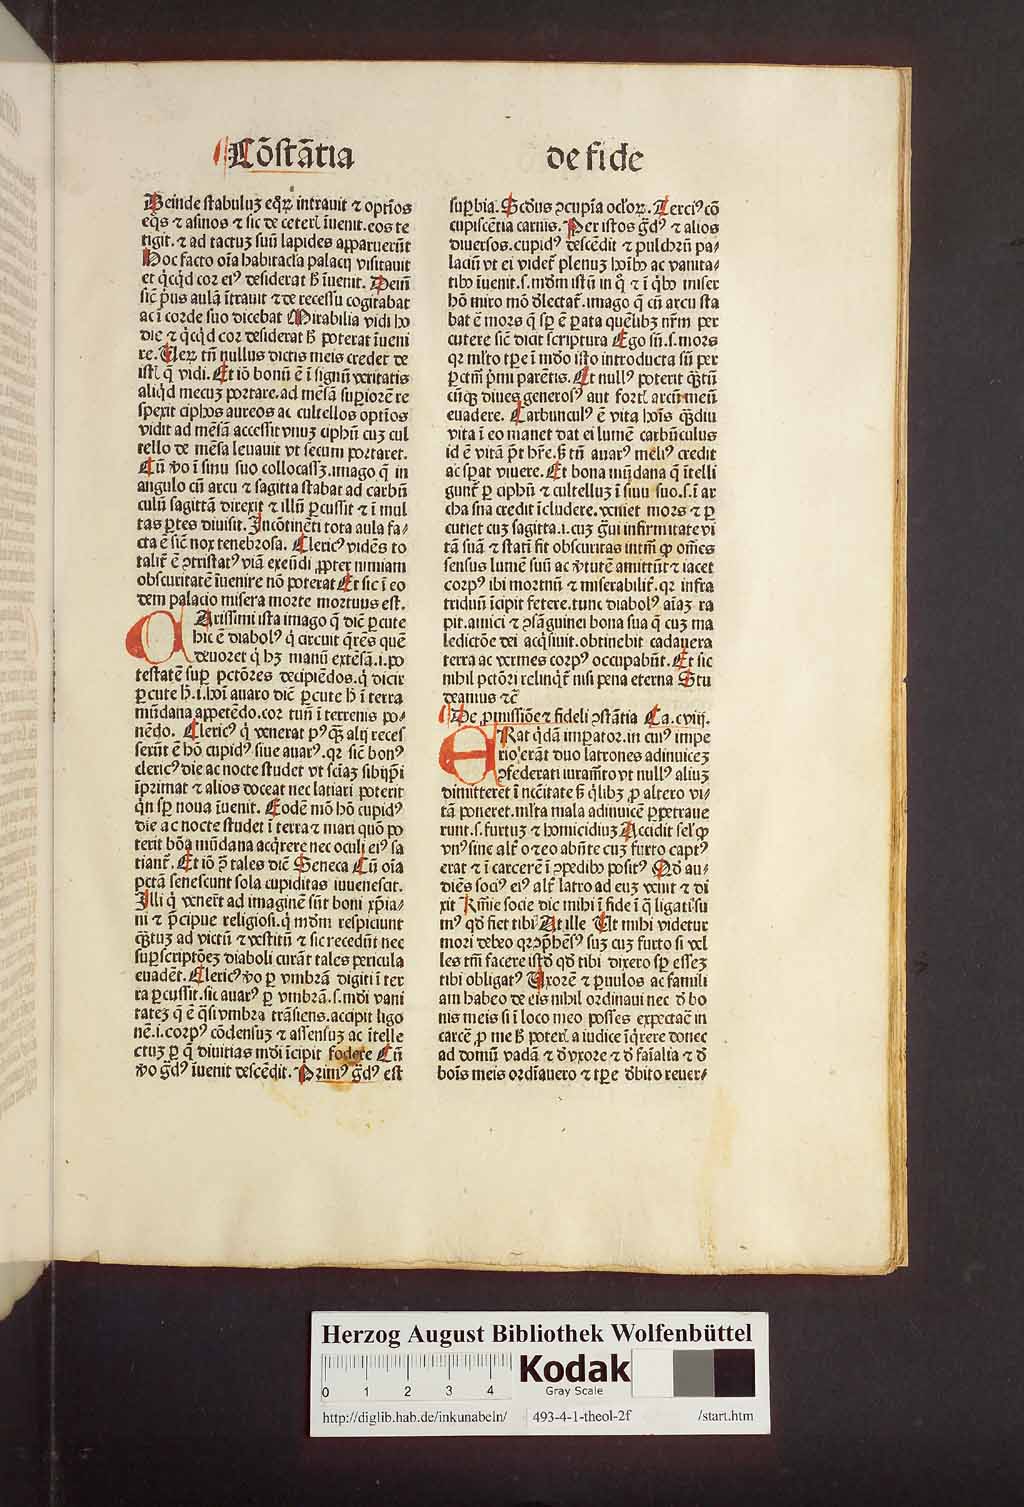 Cōstātia de fide
Deinde stabuluʒ eqͦꝝ intrauit ⁊ optīos
eqͦs ⁊ asinos ⁊ sic de ceterꝭ īuenit. eos te
tigit. ⁊ ad tactuʒ suū lapides apparuerūt
Hoc facto oīa habitacl̄a palacij visitauit
et qͥcqͥd cor eiꝰ desiderat h̄ īuenit. Deīn
sic̄ pͥus aulā ītrauit ⁊ de recessu cogitabat
ac ī corde suo dicebat Mirabilia vidi ho
die ⁊ qͥcqͥd cor desiderat h̄ poterat īueni
re. Ueꝝ tn̄ nullus dictis meis credet de
istꝭ q̄ vidi. Et iō bonū ē ī signū veritatis
aliqͥd mecuʒ portare. ad mēsā suꝑiorē re
spexit ciphos aureos ac cultellos optīos
vidit ad mēsā accessit vnuʒ ciphū cuʒ cul
tello de mēsa leuauit vt secum portaret.
Cū v̄o ī sinu suo collocassʒ. imago q̄ in
angulo cū arcu ⁊ sagitta stabat ad carbū
culū sagittā direxit ⁊ illū ꝑcussit ⁊ ī mul
tas ꝑtes diuisit. Incōtinēti tota aula fa⸗
cta ē sic̄ nox tenebrosa. Clericꝰ vidēs to
talit̄ ē ꝯtristatꝰ viā exeūdi ꝓpter nimiam
obscuritatē īuenire nō poterat Et sic ī eo
dem palacio misera morte mortuus est.
CArissimi ista imago q̄ dic̄ ꝑcute
hic ē diabolꝰ qͥ circuit q̄rēs quē
deuoret qͥ hʒ manū extēsā. i. po
testatē suꝑ pctōres decipiēdos. qͥ dicit
ꝑcute h̄. i. hoī auaro dic̄ ꝑcute h̄ ī terra
mūdana appetēdo. cor tuū ī terrenis po⸗
nēdo. Clericꝰ qͥ venerat pꝰqͣʒ alij reces
serūt ē hō cupidꝰ siue auarꝰ. qꝛ sic̄ bonꝰ
clericꝰ die ac nocte studet vt sciāʒ sibijp̄i
īprimat ⁊ alios doceat nec latiari poterit
qͥn sꝑ noua īuenit. Eodē mō hō cupidꝰ
die ac nocte studet ī terra ⁊ mari quō po
terit bōa mūdana acqͥrere nec oculi eiꝰ sa
tiant̄. Et iō ꝯ̄ tales dic̄ Seneca Cū oīa
pctā senescunt sola cupiditas iuuenescit.
Illi qͥ venēt ad imaginē sūt boni xp̄ia⸗
ni ⁊ p̄cipue religiosi. qͥ mōm respiciunt
qͣʒtuʒ ad victū ⁊ vestitū ⁊ sic recedūt nec
suꝑscriptōeʒ diaboli curāt tales pericula
euadēt. Clericꝰ v̄o ꝑ vmbrā digiti ī ter
ra ꝑcussit. sic auarꝰ ꝑ vmbrā. s. mōi vani
tateʒ q̄ ē qͣsi vmbra trāsiens. accipit ligo
nē. i. corpꝰ cōdensuʒ ⁊ assensuʒ ac ītelle
ctuʒ ꝑ q̄ diuitias mōi īcipit fodere Cū
v̄o ḡdꝰ īuenit descēdit. Primꝰ ḡdꝰ est
suꝑbia. Scd̄us ꝯcupīa ocl̓oꝝ. Terciꝰ cō
cupiscētia carnis. Per istos ḡdꝰ ⁊ alios
diuersos. cupidꝰ descēdit ⁊ pulchrū pa⸗
laciū vt ei videt̄ plenuʒ hoībꝰ ac vanita⸗
tibꝰ īuenit. s. mōm istū in qͦ ⁊ ī qͥbꝰ miser
hō miro mō d̓lectat̄. imago q̄ cū arcu sta
bat ē mors q̄ sꝑ ē ꝑata quēlibʒ nr̄m per
cutere sic̄ dicit scriptura Ego sū. s. mors
qꝛ ml̓to tꝑe ī mōo isto introducta sū per
ꝑctm̄ pͥmi parētis. Et nullꝰ poterit qͣʒtū
cūqʒ diues generosꝰ aut fortꝭ arcū meū
euadere. Carbunculꝰ ē vita hoīs qͣʒdiu
vita ī eo manet dat ei lumē carbūculus
id ē vitā pōt hr̄e. s̄ tn̄ auarꝰ meliꝰ credit
ac sꝑat viuere. Et bona mūdana q̄ ītelli
gunt̄ ꝑ ciphū ⁊ cultelluʒ ī sinu suo. s. ī ar
cha sua credit īcludere. veniet mors ⁊ ꝑ
cutiet cuʒ sagitta. i. cuʒ ḡui infirmitate vi
tā suā ⁊ statī fit obscuritas intm̄ ꝙ oēs
sensus lumē suū ac v̓tutē amittūt ⁊ iacet
corpꝰ ibi mortuū ⁊ miserabilit̄. qꝛ infra
triduū īcipit fetere. tunc diabolꝰ aīaʒ ra
pit. amici ⁊ ꝯsāguinei bona sua q̄ cuʒ ma
ledictōe dei acqͥsiuit. obtinebit cadauera
terra ac vermes corpꝰ occupabūt. Et sic
nihil pctōri relinqͥt̄ nisi pena eterna Stu
deamus ⁊c̄
De ꝓmissiōe ⁊ fideli ꝯstātia Ca. cviij.
ERat qͥdā imꝑator. in cuiꝰ impe
rio erāt duo latrones adinuiceʒ
ꝯfederati iuram̄to vt nullꝰ aliuʒ
dimitteret ī nc̄citate s̄ qͥlibʒ ꝓ altero vi⸗
tā poneret. ml̓ta mala adinuicē ꝑpetraue
runt. s. furtuʒ ⁊ homicidiuʒ Accidit sel̓ ꝙ
vnꝰ sine alt̄o ⁊ eo abn̄te cuʒ furto captꝰ
erat ⁊ ī carcerē ī ꝯpedibꝰ positꝰ Qd̓ au⸗
diēs sociꝰ eiꝰ alt̄ latro ad euʒ venit ⁊ di
xit Km̄ie socie dic mihi ī fide ī q̄ ligati su
mꝰ qd̓ fiet tibi At ille Vt mihi videtur
mori debeo qꝛ ꝯp̄hēsꝰ suʒ cuʒ furto si vel
les tm̄ facere istd̓ qd̓ tibi dixero sꝑ esseʒ
tibi obligatꝰ Uxorē ⁊ ꝑuulos ac famili
am habeo de eis nihil ordinaui nec d̓ bo
nis meis si ī loco meo posses expectac̄ in
carcē ꝓ me h̄ poterꝭ a iudice īqͥrere donec
ad domū vadā ⁊ d̓ vxore ⁊ d̓ faīalia ⁊ d̓
boīs meis ordīauero ⁊ tꝑe d̓bito reuer⸗
Herzog August Bibliothek Wolfenbüttel
0 1 2 3 4
Kodak
Gray Scale
http://diglib.hab.de/inkunabeln/ 493-4-1-theol-2f /start.htm